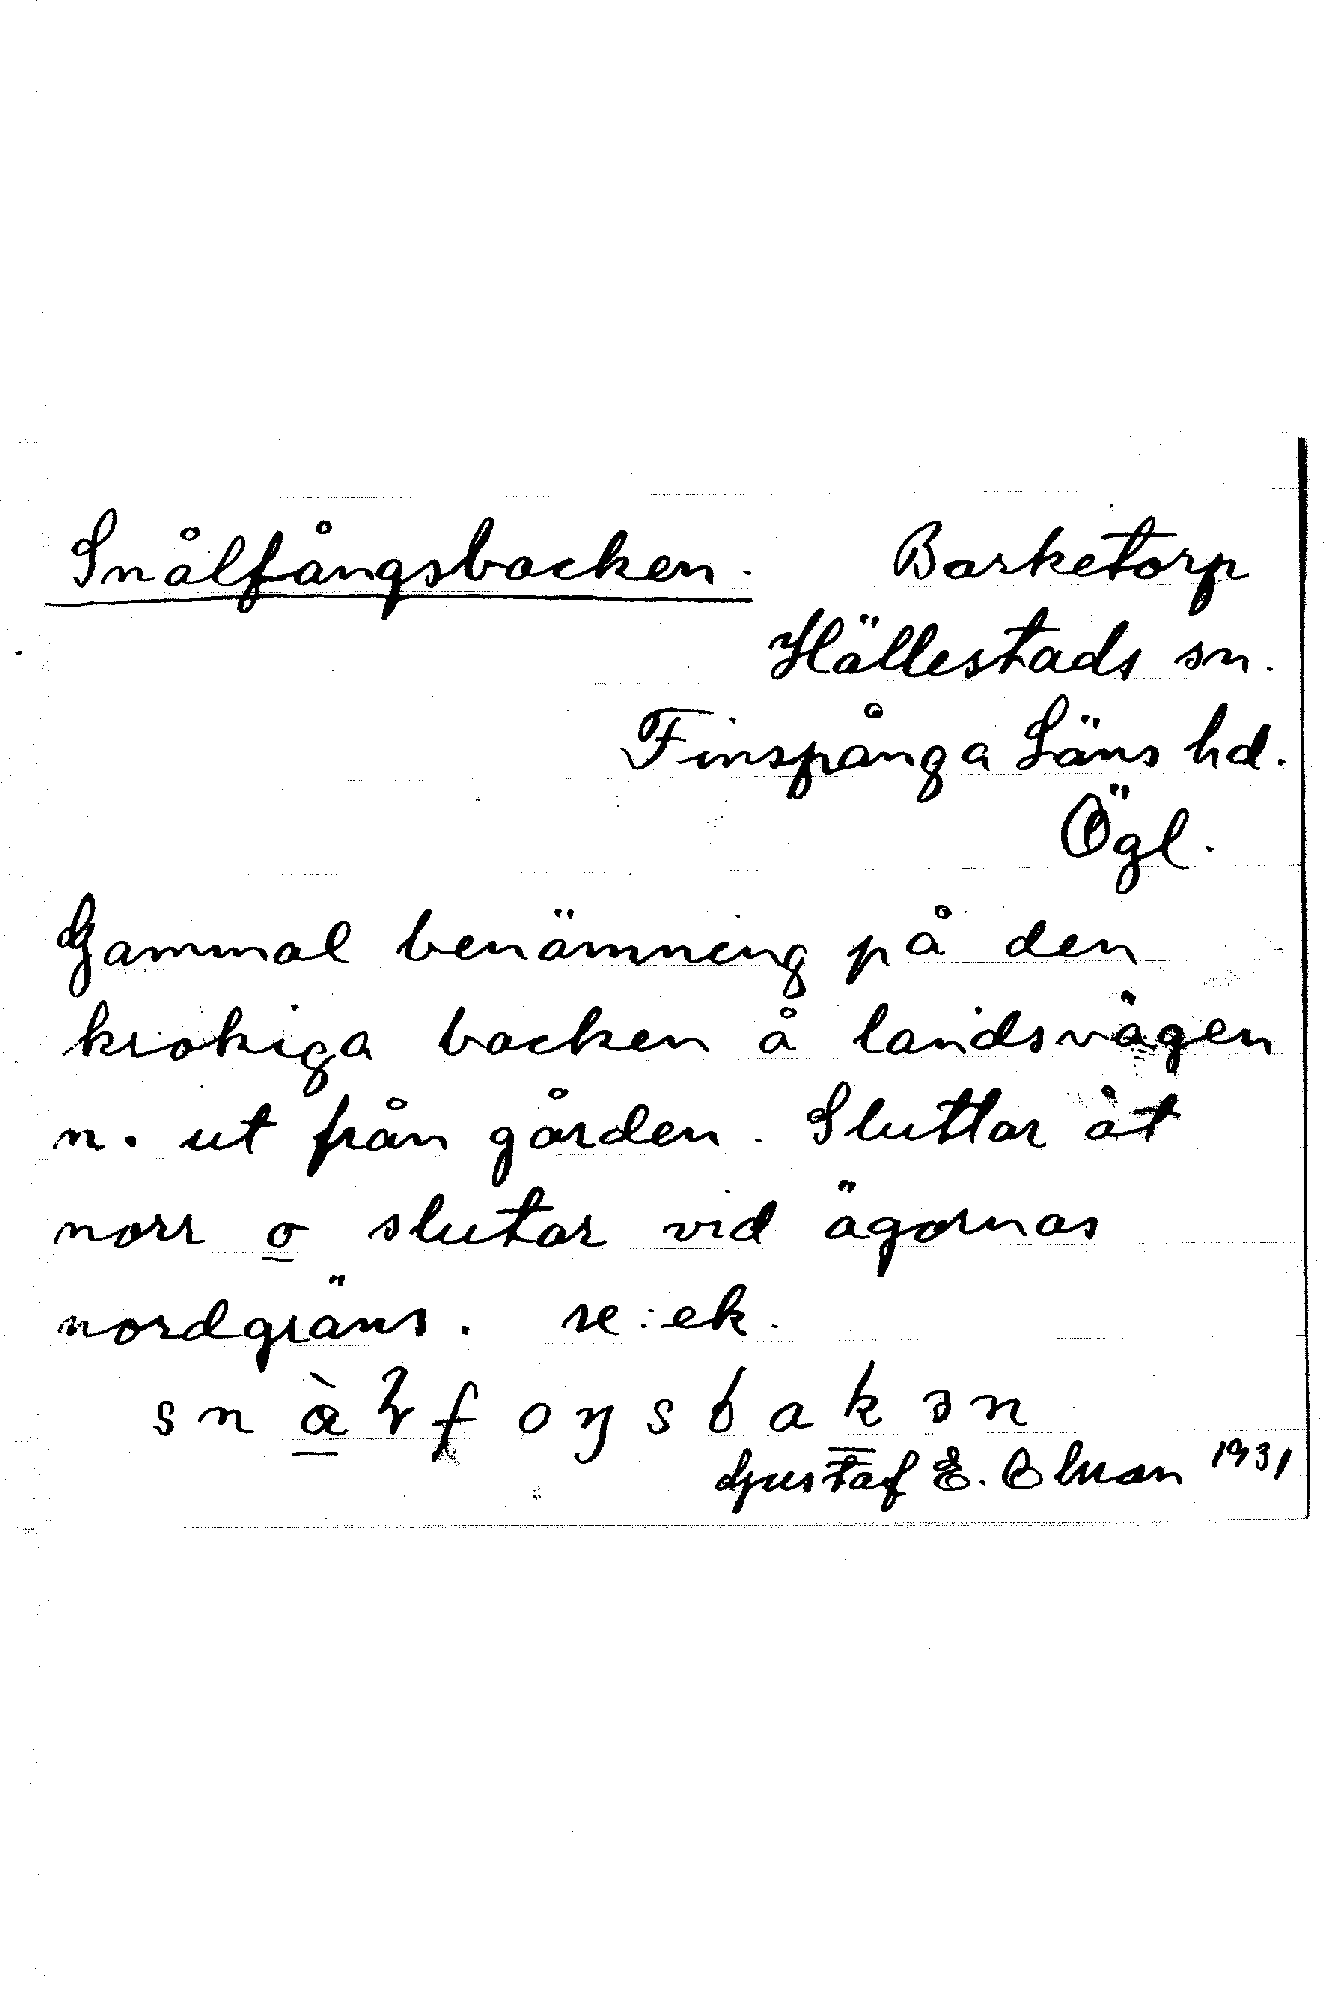 Snålfångsbacken. Barketorp
Hällestads sn.
Finspånga Läns hd.
Ögl.
Gammal benämning på den
krokiga backen å landsvägen
n. ut från gården. Sluttar åt
norr o slutar vid ägornas
nordgräns. se: ek.
Gustaf E. 1931